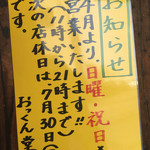 お知らせ
4月より、日曜・祝日も
営業いたします!!
(11時から21時まで)
次の店休日は、7月30日(
です。
おっくん堂